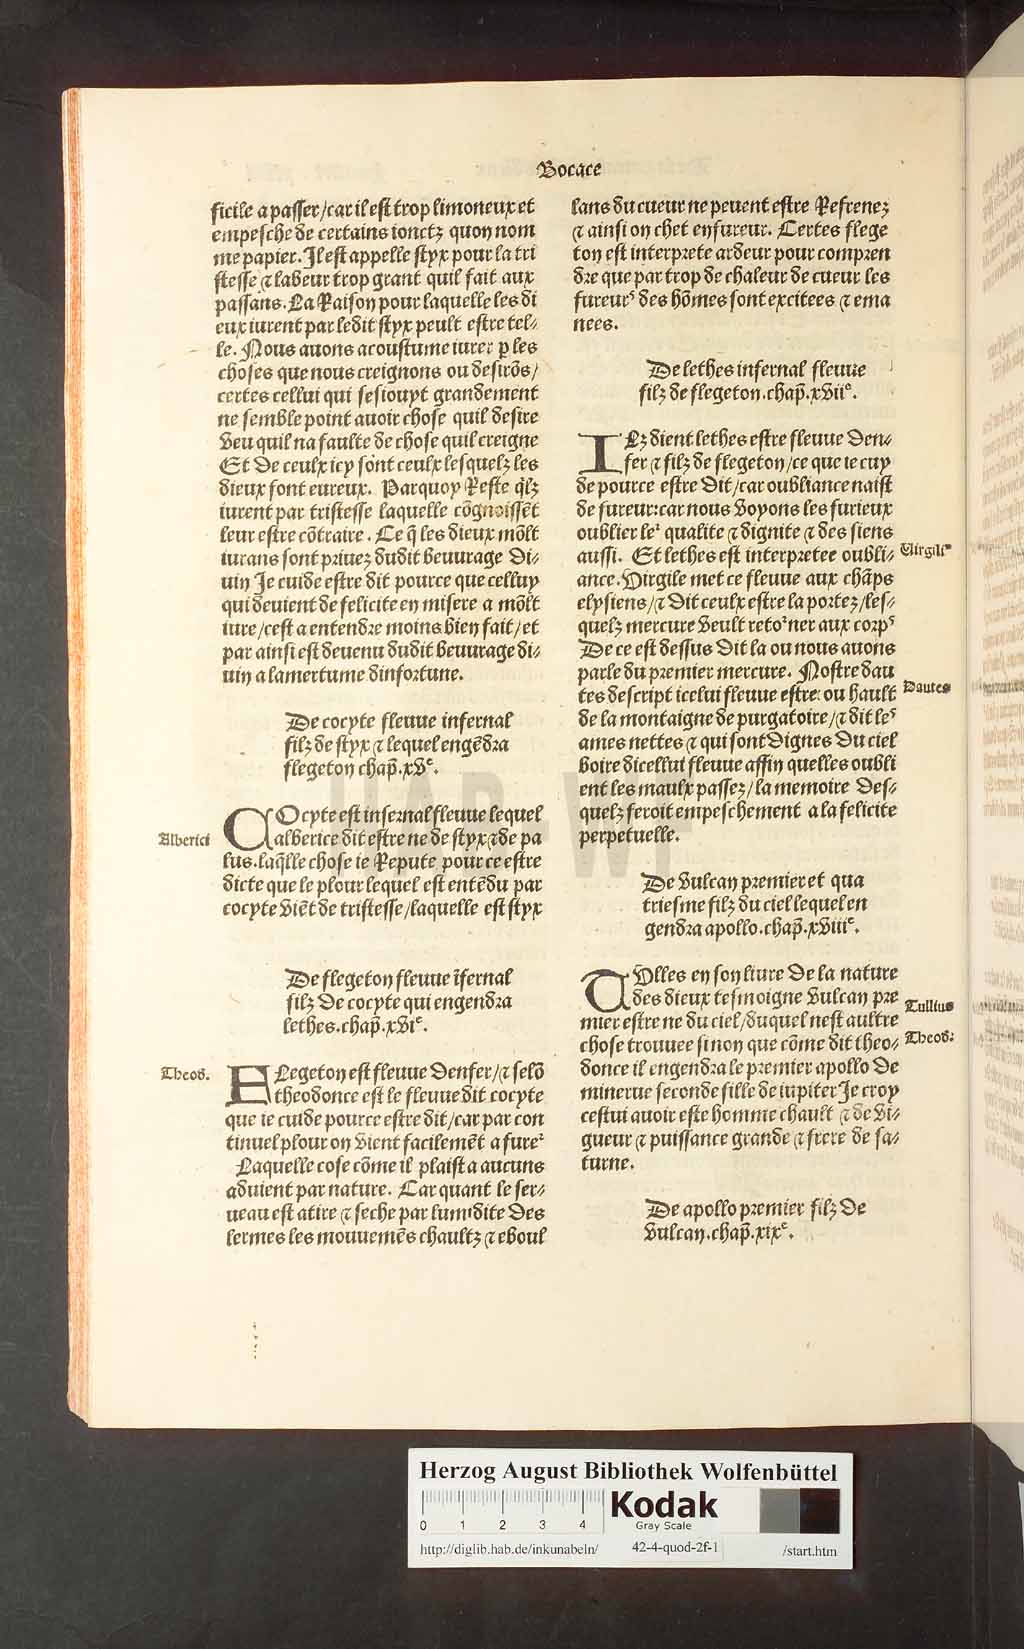 Bocace
ficile a passer/car il est trop limoneux et
empesche de certains ionctz quon nom
me papier. Il est appelle styx pour la tri
stesse ⁊ labeur trop grant quil fait aux
passans. La Raison pour laquelle les di
eux iurent par ledit styx peult estre tel⸗
le. Nous auons acoustume iurer ꝑ les
choses que nous creignons ou desirõs/
certes cellui qui sesiouyt grandement
ne semble point auoir chose quil desire
veu quil na faulte de chose quil creigne
Et de ceulx icy sont ceulx lesquelz les
dieux font eureux. Parquoy Reste q̃lz
iurent par tristesse laquelle cõgnoissẽt
leur estre cõtraire. Ce q̃ les dieux mõlt
iurans sont priuez dudit beuurage di⸗
uin Je cuide estre dit pource que celluy
qui deuient de felicite en misere a mõlt
iure/cest a entendre moins bien fait/et
par ainsi est deuenu dudit beuurage di⸗
uin a lamertume dinfortune.
De cocyte fleuue infernal
filz de styx ⁊ lequel engẽdra
flegeton chap̃.xvᵉ.
Alberici
COcyte est infernal fleuue lequel
alberice dit estre ne de styx ⁊ de pa
lus.laq̃lle chose ie Repute pour ce estre
dicte que le plour lequel est entẽdu par
cocyte viẽt de tristesse/laquelle est styx
De flegeton fleuue ĩfernal
filz de cocyte qui engendra
lethes.chap̃.xviᵉ.
Theod.
FLegeton est fleuue denfer/⁊ selõ
theodonce est le fleuue dit cocyte
que ie cuide pource estre dit/car par con
tinuel plour on vient facilemẽt a fureꝛ
Laquelle cose cõme il plaist a aucuns
aduient par nature. Car quant le ser⸗
ueau est atire ⁊ seche par lumidite des
lermes les mouuemẽs chaultz ⁊ eboul
lans du cueur ne peuent estre Refrenez
⁊ ainsi on chet en fureur. Certes flege
ton est interprete ardeur pour compren
dre que par trop de chaleur de cueur les
fureurˢ des hõmes sont excitees ⁊ ema
nees.
De lethes infernal fleuue
filz de flegeton.chap̃.xviiᵉ.
ILz dient lethes estre fleuue den⸗
fer ⁊ filz de flegeton/ce que ie cuy
de pource estre dit/car oubliance naist
de fureur:car nous voyons les furieux
oublier leꝛ qualite ⁊ dignite ⁊ des siens
aussi. Et lethes est interpretee oubli⸗
Virgiliᵒ
ance. Virgile met ce fleuue aux chãps
elysiens/⁊ dit ceulx estre la portez/les⸗
quelz mercure veult retoꝛner aux corpˢ
De ce est dessus dit la ou nous auons
parle du premier mercure. Nostre dau
Dautes
tes descript icelui fleuue estre: ou hault
de la montaigne de purgatoire/⁊ dit leˢ
ames nettes ⁊ qui sont dignes du ciel
boire dicellui fleuue affin quelles oubli
ent les maulx passez/la memoire des⸗
quelz feroit empeschement a la felicite
perpetuelle.
De vulcan premier et qua
triesme filz du ciel lequel en
gendra apollo.chap̃.xviiiᵉ.
TVlles en son liure de la nature
des dieux tesmoigne vulcan pre
Tullius
mier estre ne du ciel/duquel nest aultre
Theod:
chose trouuee sinon que cõme dit theo⸗
donce il engendra le premier apollo de
minerue seconde fille de iupiter Je croy
cestui auoir este homme chault ⁊ de vi⸗
gueur ⁊ puissance grande ⁊ frere de sa⸗
turne.
De apollo premier filz de
vulcan.chap̃.xixᵉ.
HAB-WF
Herzog August Bibliothek Wolfenbüttel
0 1 2 3 4
Kodak
Gray Scale
http://diglib.hab.de/inkunabeln/ 42-4-quod-2f-1 /start.htm